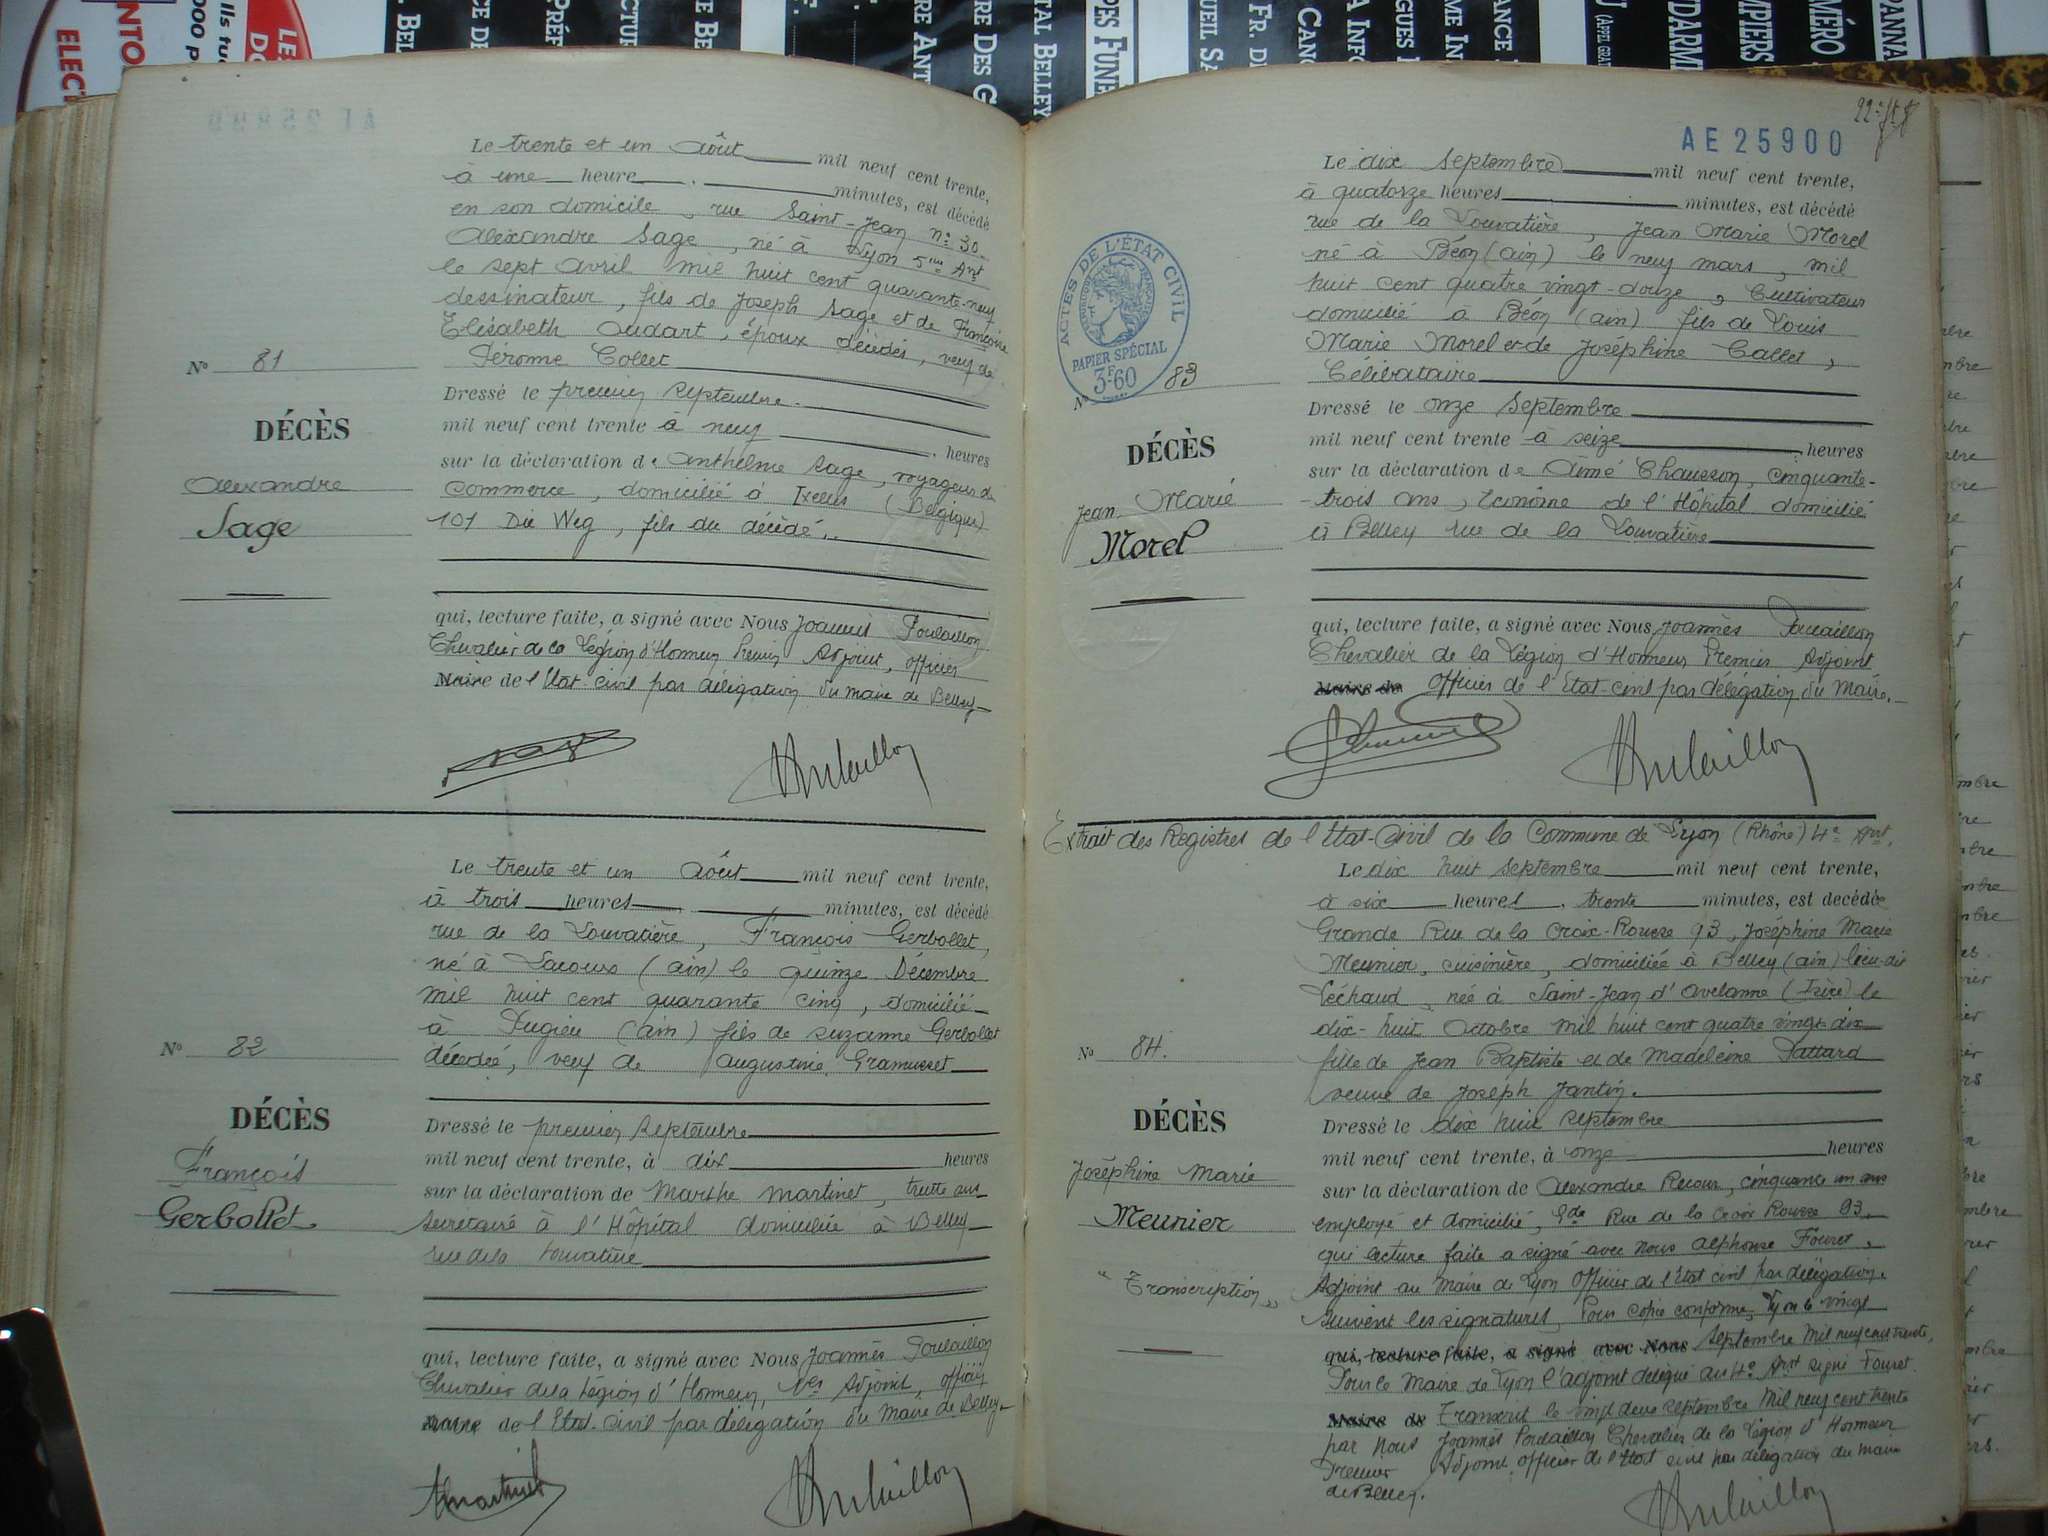 AE 25900
Le trente et un Août mil neuf cent trente,
à une heure minutes, est décédé
en son domicile, rue Saint-Jean n° 30
Alexandre Sage, né à Lyon 5me Arrt
le sept Avril mil huit cent quarante-neuf
dessinateur, fils de Joseph Sage et de Françoise
Elisabeth Oudart, époux décédés, veuf de
Jérome Collet
N° 81
DÉCÈS
Alexandre
Sage
Dressé le premier Septembre
mil neuf cent trente à neuf heures
sur la déclaration de Anthelme Sage, voyageur de
commerce, domicilié à Ixelles (Belgique)
101 Die Weg, fils du décédé.
qui, lecture faite, a signé avec Nous Joannès Poulaillon
Chevalier de la Légion d'Honneur Premier Adjoint, officier
Maire de l'Etat-civil par délégation du maire de Belley
Le trente et un Août mil neuf cent trente,
à trois heures minutes, est décédé
rue de la Louvatière, François Gerbollet,
né à Lacours (ain) le quinze Décembre
mil huit cent quarante cinq, domicilié
à Pugieu (ain) fils de Suzanne Gerbollet
décédée, veuf de Augustine Gramusset
N° 82
DÉCÈS
François
Gerbollet
Dressé le premier Septembre
mil neuf cent trente, à dix heures
sur la déclaration de Marthe Martinet, trente ans
secrétaire à l'Hôpital domiciliée à Belley
rue de la Louvatière
qui, lecture faite, a signé avec Nous Joannès Poulaillon
Chevalier de la Légion d'Honneur, 1er Adjoint, officier
Maire de l'Etat-civil par délégation du Maire de Belley
Martinet
Poulaillon
Le dix Septembre mil neuf cent trente,
à quatorze heures minutes, est décédé
rue de la Louvatière, Jean Marie Morel
né à Béon (ain) le neuf mars, mil
huit cent quatre vingt-douze, Cultivateur
domicilié à Béon (ain) fils de Louis
Marie Morel et de Joséphine Callet,
Célibataire
ACTES DE L'ÉTAT CIVIL
PAPIER SPÉCIAL
3F60
N° 83
DÉCÈS
Jean Marie
Morel
Dressé le onze Septembre
mil neuf cent trente à seize heures
sur la déclaration de Aimé Chausson, cinquante-
-trois ans, Econôme de l'Hôpital domicilié
à Belley rue de la Louvatière
qui, lecture faite, a signé avec Nous Joannès Poulaillon
Chevalier de la Légion d'Honneur Premier Adjoint
Maire de Officier de l'Etat-civil par délégation du Maire.
Poulaillon
Extrait des Registres de l'Etat-Civil de la Commune de Lyon (Rhône) 4e Arrt.
Le dix huit Septembre mil neuf cent trente,
à six heures, trente minutes, est décédée
Grande Rue de la Croix-Rousse 93, Joséphine Marie
Meunier, cuisinière, domiciliée à Belley (ain) lieu-dit
Péchaud, née à Saint-Jean d'avelanne (Isère) le
dix-huit Octobre mil huit cent quatre vingt-dix
fille de Jean Baptiste et de Madeleine Pattard
veuve de Joseph Jantin.
N° 84.
DÉCÈS
Joséphine Marie
Meunier
"Transcription"
Dressé le dix huit Septembre
mil neuf cent trente, à onze heures
sur la déclaration de Alexandre Recour, cinquante un ans
employé et domicilié, Gde Rue de la Croix Rousse 93,
qui lecture faite a signé avec nous Alphonse Fouret,
Adjoint au Maire de Lyon Officier de l'état civil par délégation.
Suivent les signatures, Pour copie conforme, Lyon le vingt
qui, lecture faite, a signé avec Nous Septembre Mil neuf cent trente,
Pour le Maire de Lyon l'adjoint délégué au 4e Arrt signé Fouret.
Maire de Transcrit le vingt deux Septembre Mil neuf cent trente
par Nous Joannès Poulaillon Chevalier de la Légion d'Honneur
Premier Adjoint, officier de l'état civil par délégation du maire
de Belley.
Poulaillon